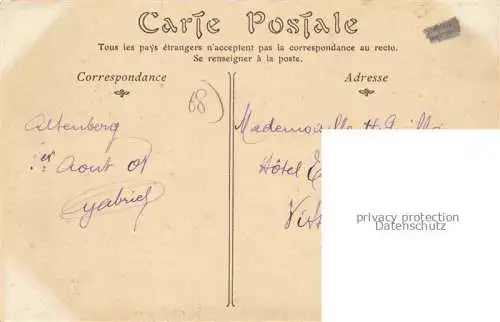 Carte Postale
Tous les pays étrangers n'acceptent pas la correspondance au recto.
Se renseigner à la poste.
Correspondance
Adresse
68
Altenberg
1er Aout 09
Gabriel
Mademoiselle
Hôtel
privacy protection
Datenschutz